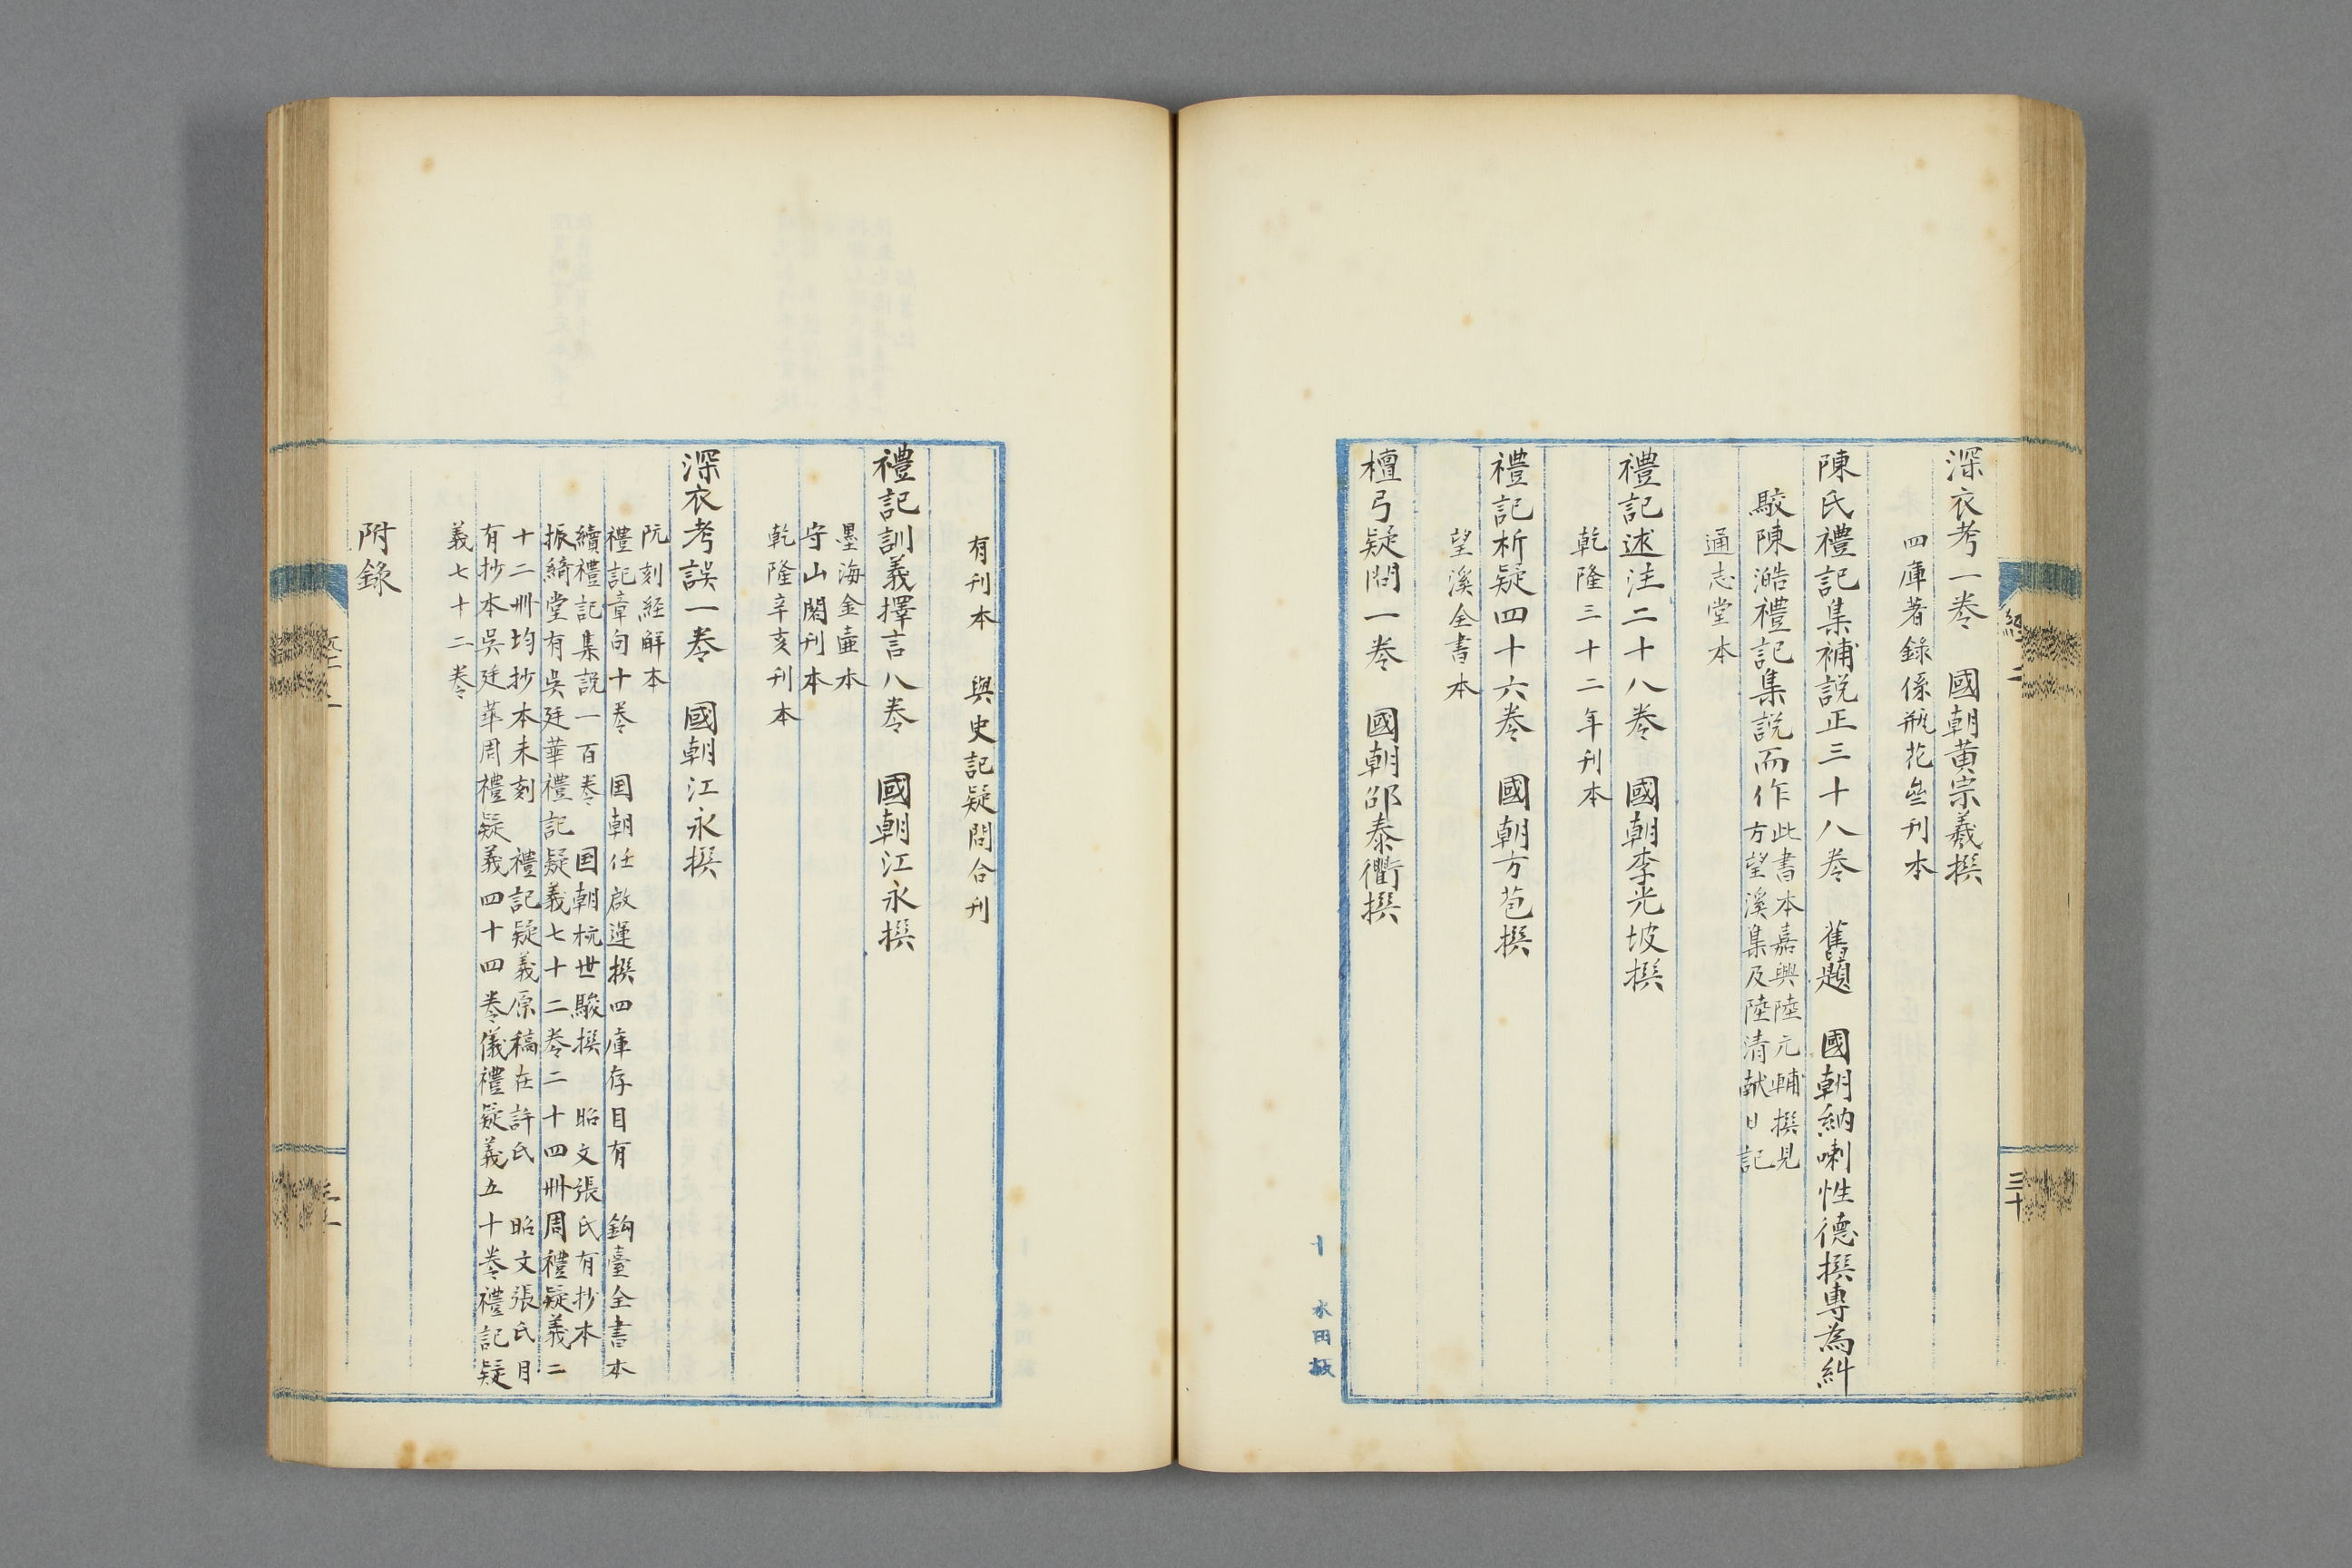 深衣考一卷　國朝黄宗羲撰
四庫著錄係瓶花㕓刊本
陳氏禮記集補説正三十八卷　舊題　國朝納喇性德撰專為糾
駁陳澔禮記集説而作
此書本嘉興陸元輔撰見
方望溪集及陸清献日記
通志堂本
禮記述注二十八卷　國朝李光坡撰
乾隆三十二年刊本
禮記析疑四十六卷　國朝方苞撰
望溪全書本
檀弓疑問一卷　國朝邵泰衢撰
有刊本　與史記疑問合刊
禮記訓義擇言八卷　國朝江永撰
墨海金壷本
守山閣刊本
乾隆辛亥刊本
深衣考誤一卷　國朝江永撰
阮刻経解本
禮記章句十卷　国朝任啟運撰四庫存目有　鈎臺全書本
續禮記集説一百卷　国朝杭世駿撰　昭文張氏有抄本
振綺堂有吳廷華禮記疑義七十二卷二十四冊周禮疑義二
十二冊均抄本未刻　禮記疑義原稿在許氏　昭文張氏月
有抄本吳廷華周禮疑義四十四卷儀禮疑義五十卷禮記疑
義七十二卷
附錄
三十